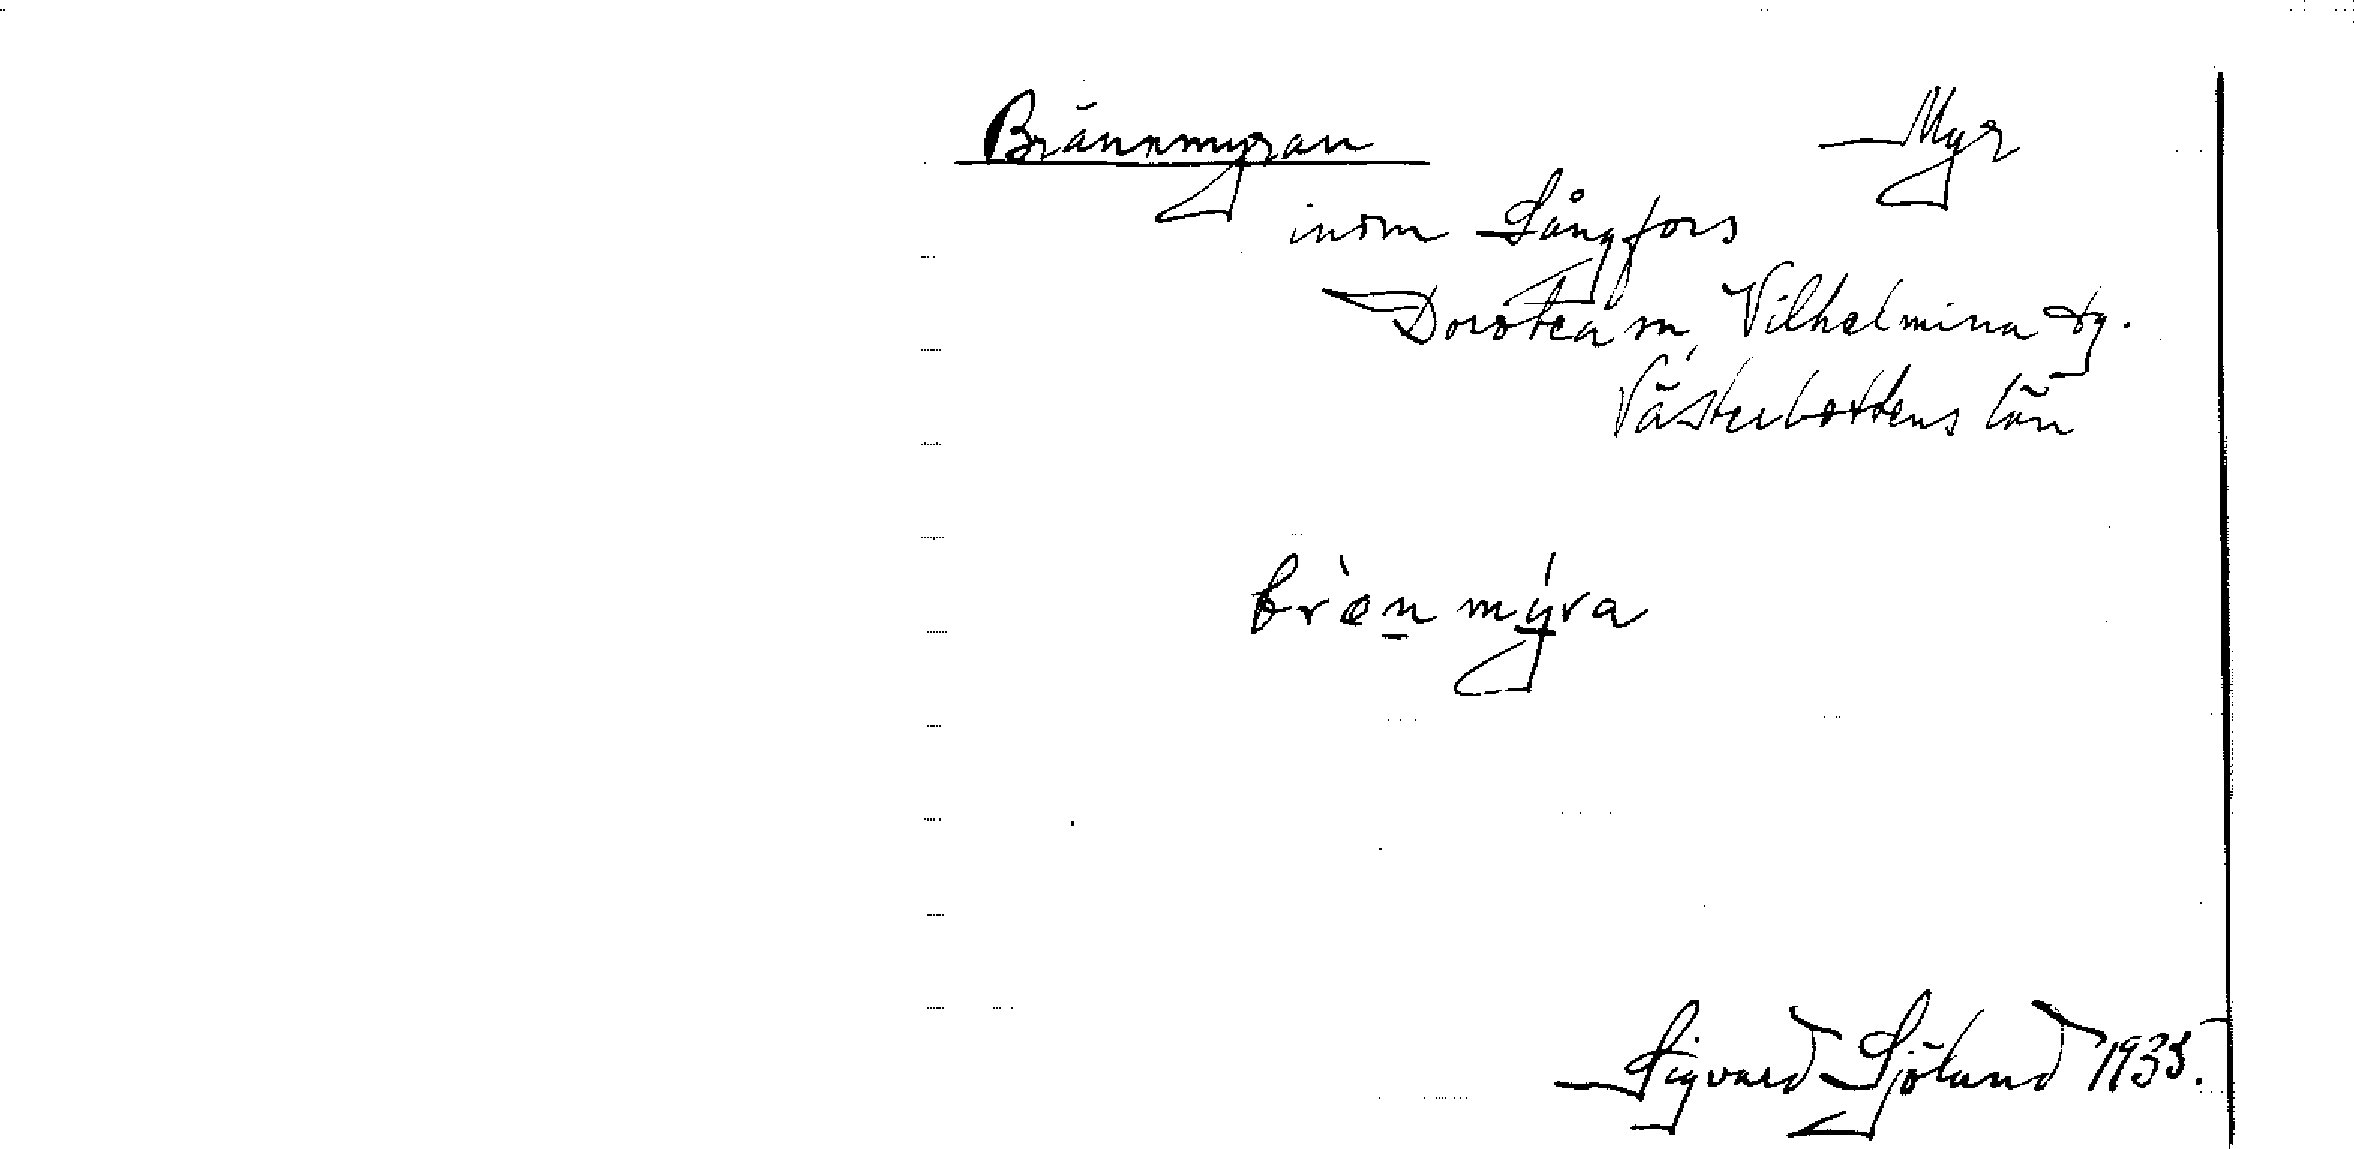 Brännmyran Myr
inom Långfors
Dorotea sn, Vilhelmina tg.
Västerbottens län
bræ̀n̲ mý̲ra
Sigvard Sjölund 1935.